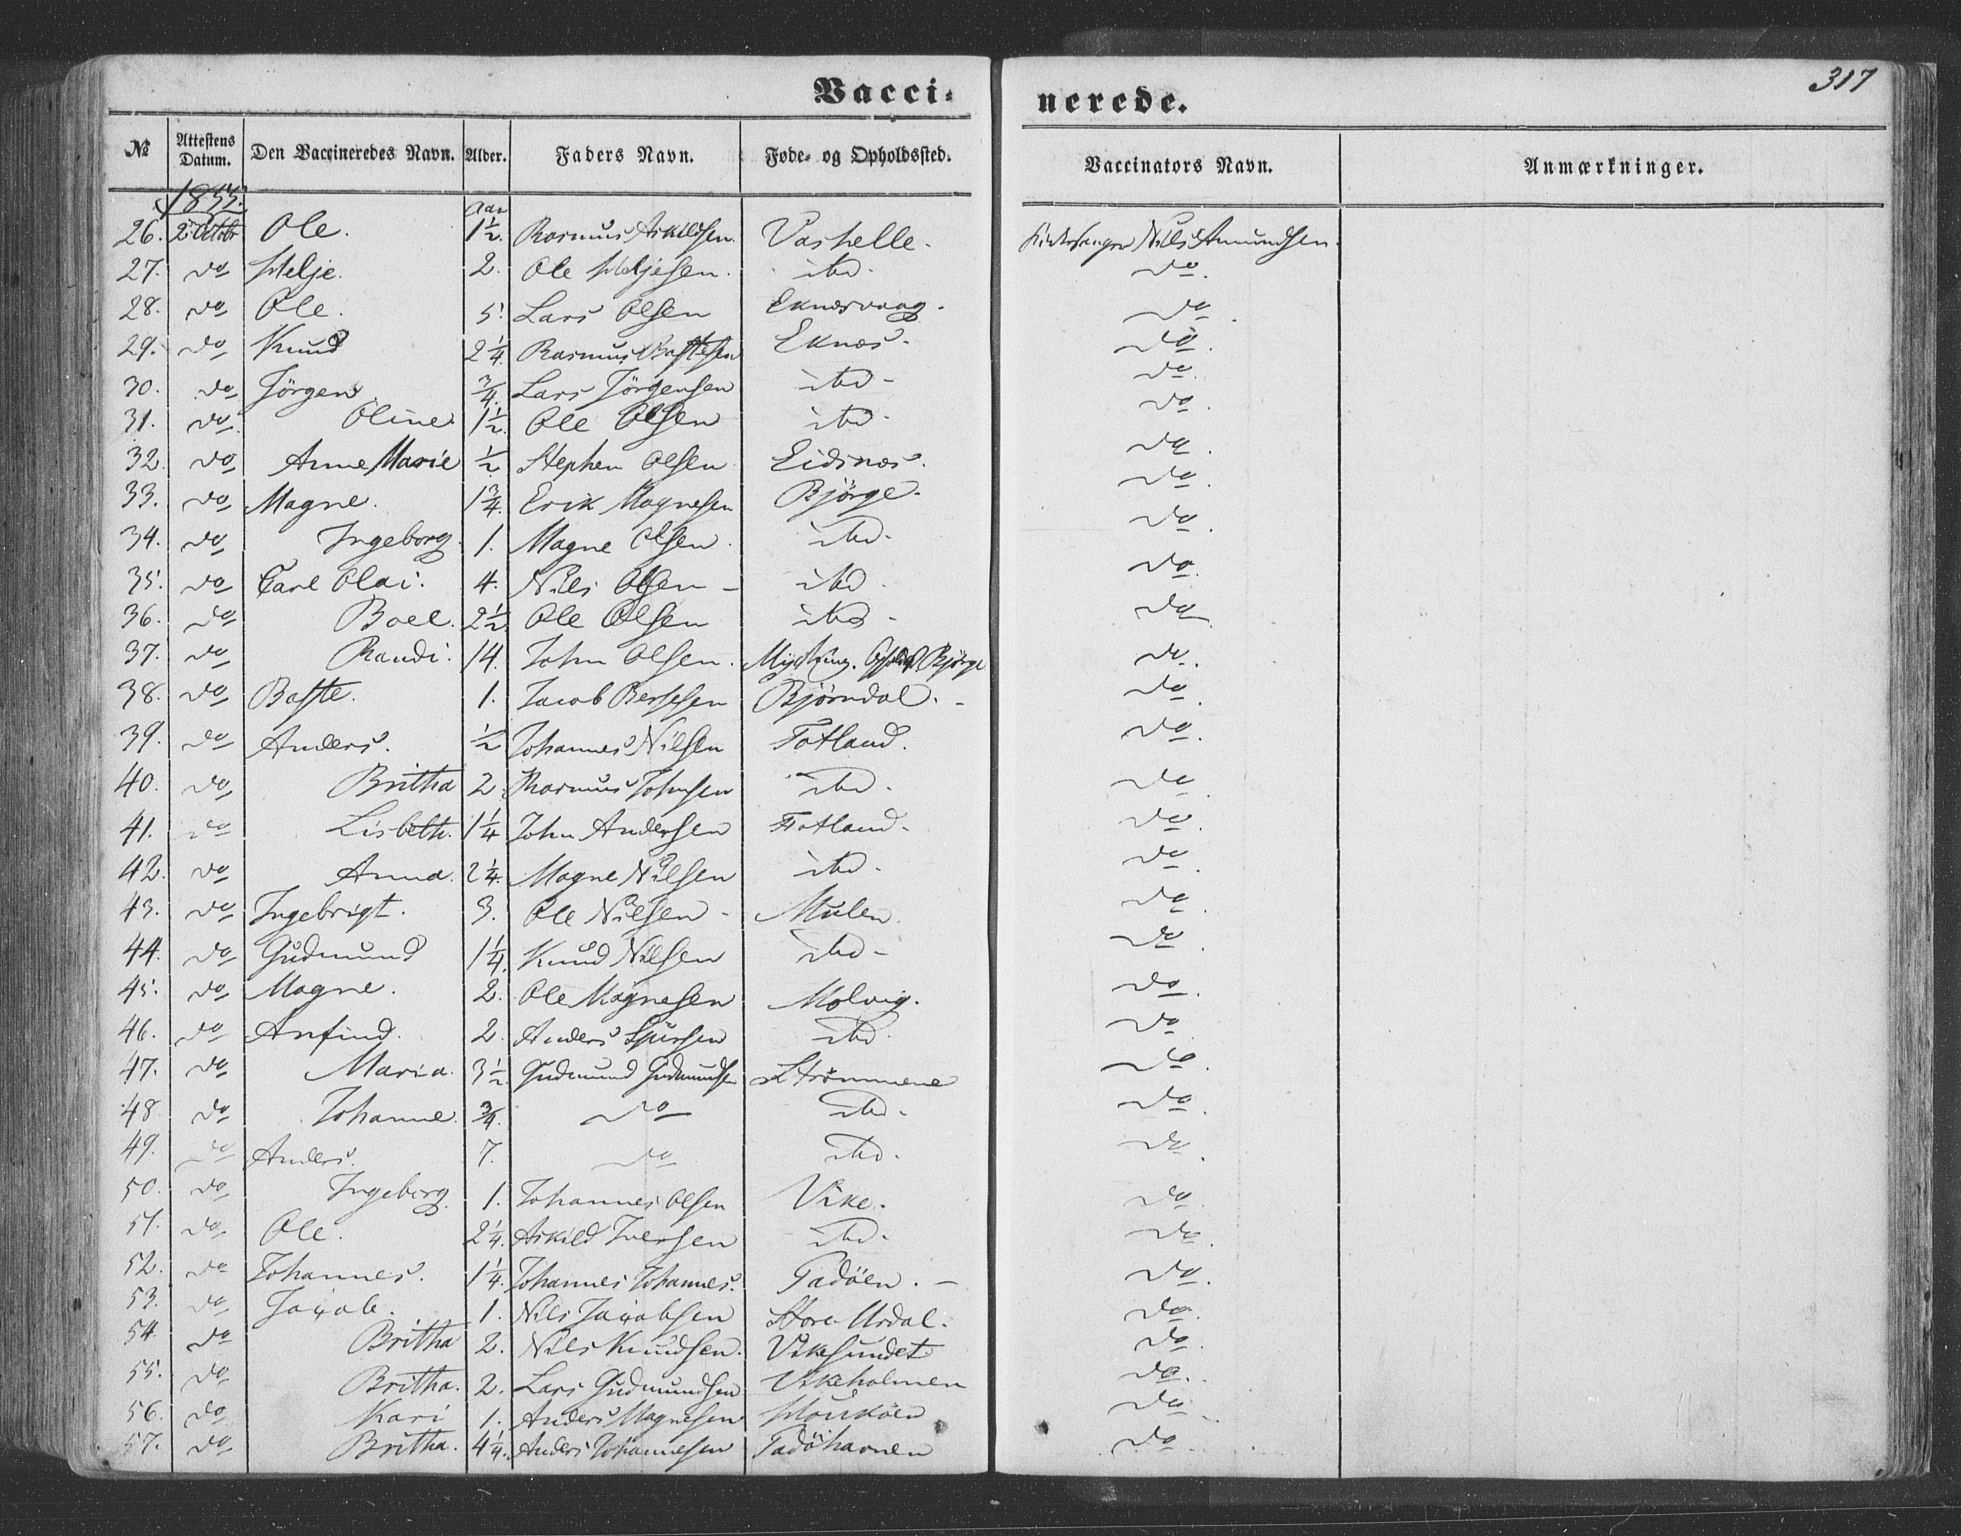 317
Vacci- nerede.
№ Attestens Datum. Den Vaccineredes Navn. Alder. Faders Navn. Føde- og Opholdssted. Vaccinators Navn. Anmærkninger.
Aar
26. 2 Octobr Ole. 1½. Rasmus Askildsen. Vashelle. Nils Amundsen.
27. do Helje. 2. Ole Heljesen. ibd. do.
28. do Ole. 5. Lars Olsen Eknæsvaag. do.
29. do Knud 2¼. Rasmus Bastesen Eknæs. do.
30. do Jörgen. ¾. Lars Jörgensen ibd. do.
31. do. Oline. 1½. Ole Olsen ibd. do.
32. do Anne Marie ½ Stephen Olsen Eidsnæs. do.
33. do Magne. 1¾. Erik Magnesen Bjørge. do.
34. do Ingeborg. 1. Magne Olsen. ibd. do.
35. do Carl Olai. 4. Nils Olsen - ibd. do.
36. do Boel. 2½. Ole Olsen ibd. do
37. do Randi. 14. John Olsen. Bjørge do.
38. do Baste. 1. Jacob Bersesen Bjørndal. - do.
39. do Anders. ½ Johannes Nilsen Fotland. do.
40. do Britha 2. Rasmus Johnsen ibd. do.
41. do Lisbeth. 1¼ John Andersen Fotland. do.
42. do Anna. 2¼. Magne Nilsen ibd. do.
43. do Ingebrigt. 3. Ole Nilsen - Mulen. do.
44. do Gudmund 1¼. Knud Nilsen ibd - do.
45. do Magne. 2. Ole Magnesen Molvig. do.
46. do Anfind. 2. Anders ibd. do.
47. do Maria. 3½. Gudmund Gudmundsen Strömmene do.
48 do Johanne. ¾. do ibd. do.
49. do Anders. 7. do ibd. do.
50. do Ingeborg. 1. Johannes Olsen Vike. do.
51. do Ole. 2¼. Askild Iversen ibd. do.
52. do Johannes. 1¼. Johannes Johannes. Tadöen. - do.
53. do Jacob. 1. Nils Jacobsen Store Urdal. do.
54. do Britha 2. Nils Knudsen. Vikesundet do.
55. do Britha. 2. Lars Gudmundsen Vikeholmen do.
56. do Kari 1. Anders Magnesen do.
57. do Britha. 4¼. Anders Johannesen Tadöhavnen do.